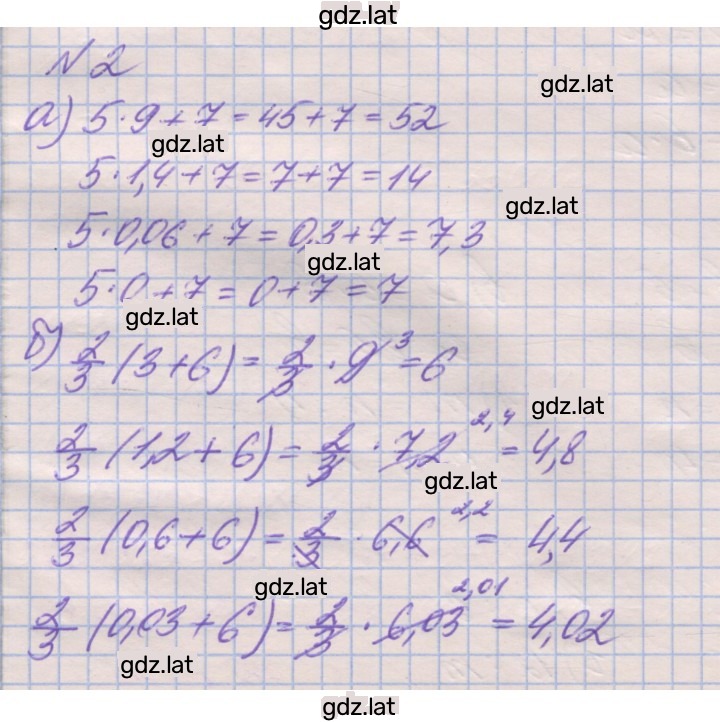 gdz.lat
№2
gdz.lat
а) 5·9+7=45+7=52
gdz.lat
5·1,4+7=7+7=14
gdz.lat
5·0,06+7=0,3+7=7,3
gdz.lat
5·0+7=0+7=7
gdz.lat
б) 2/3 (3+6)= 2/3 · 9 3 =6
gdz.lat
2/3 (1,2+6)= 2/3 · 7,2 2,4 = 4,8
gdz.lat
2/3 (0,6+6)= 2/3 · 6,6 2,2 = 4,4
gdz.lat
2/3 (0,03+6)= 2/3 · 6,03 2,01 = 4,02
gdz.lat
gdz.lat